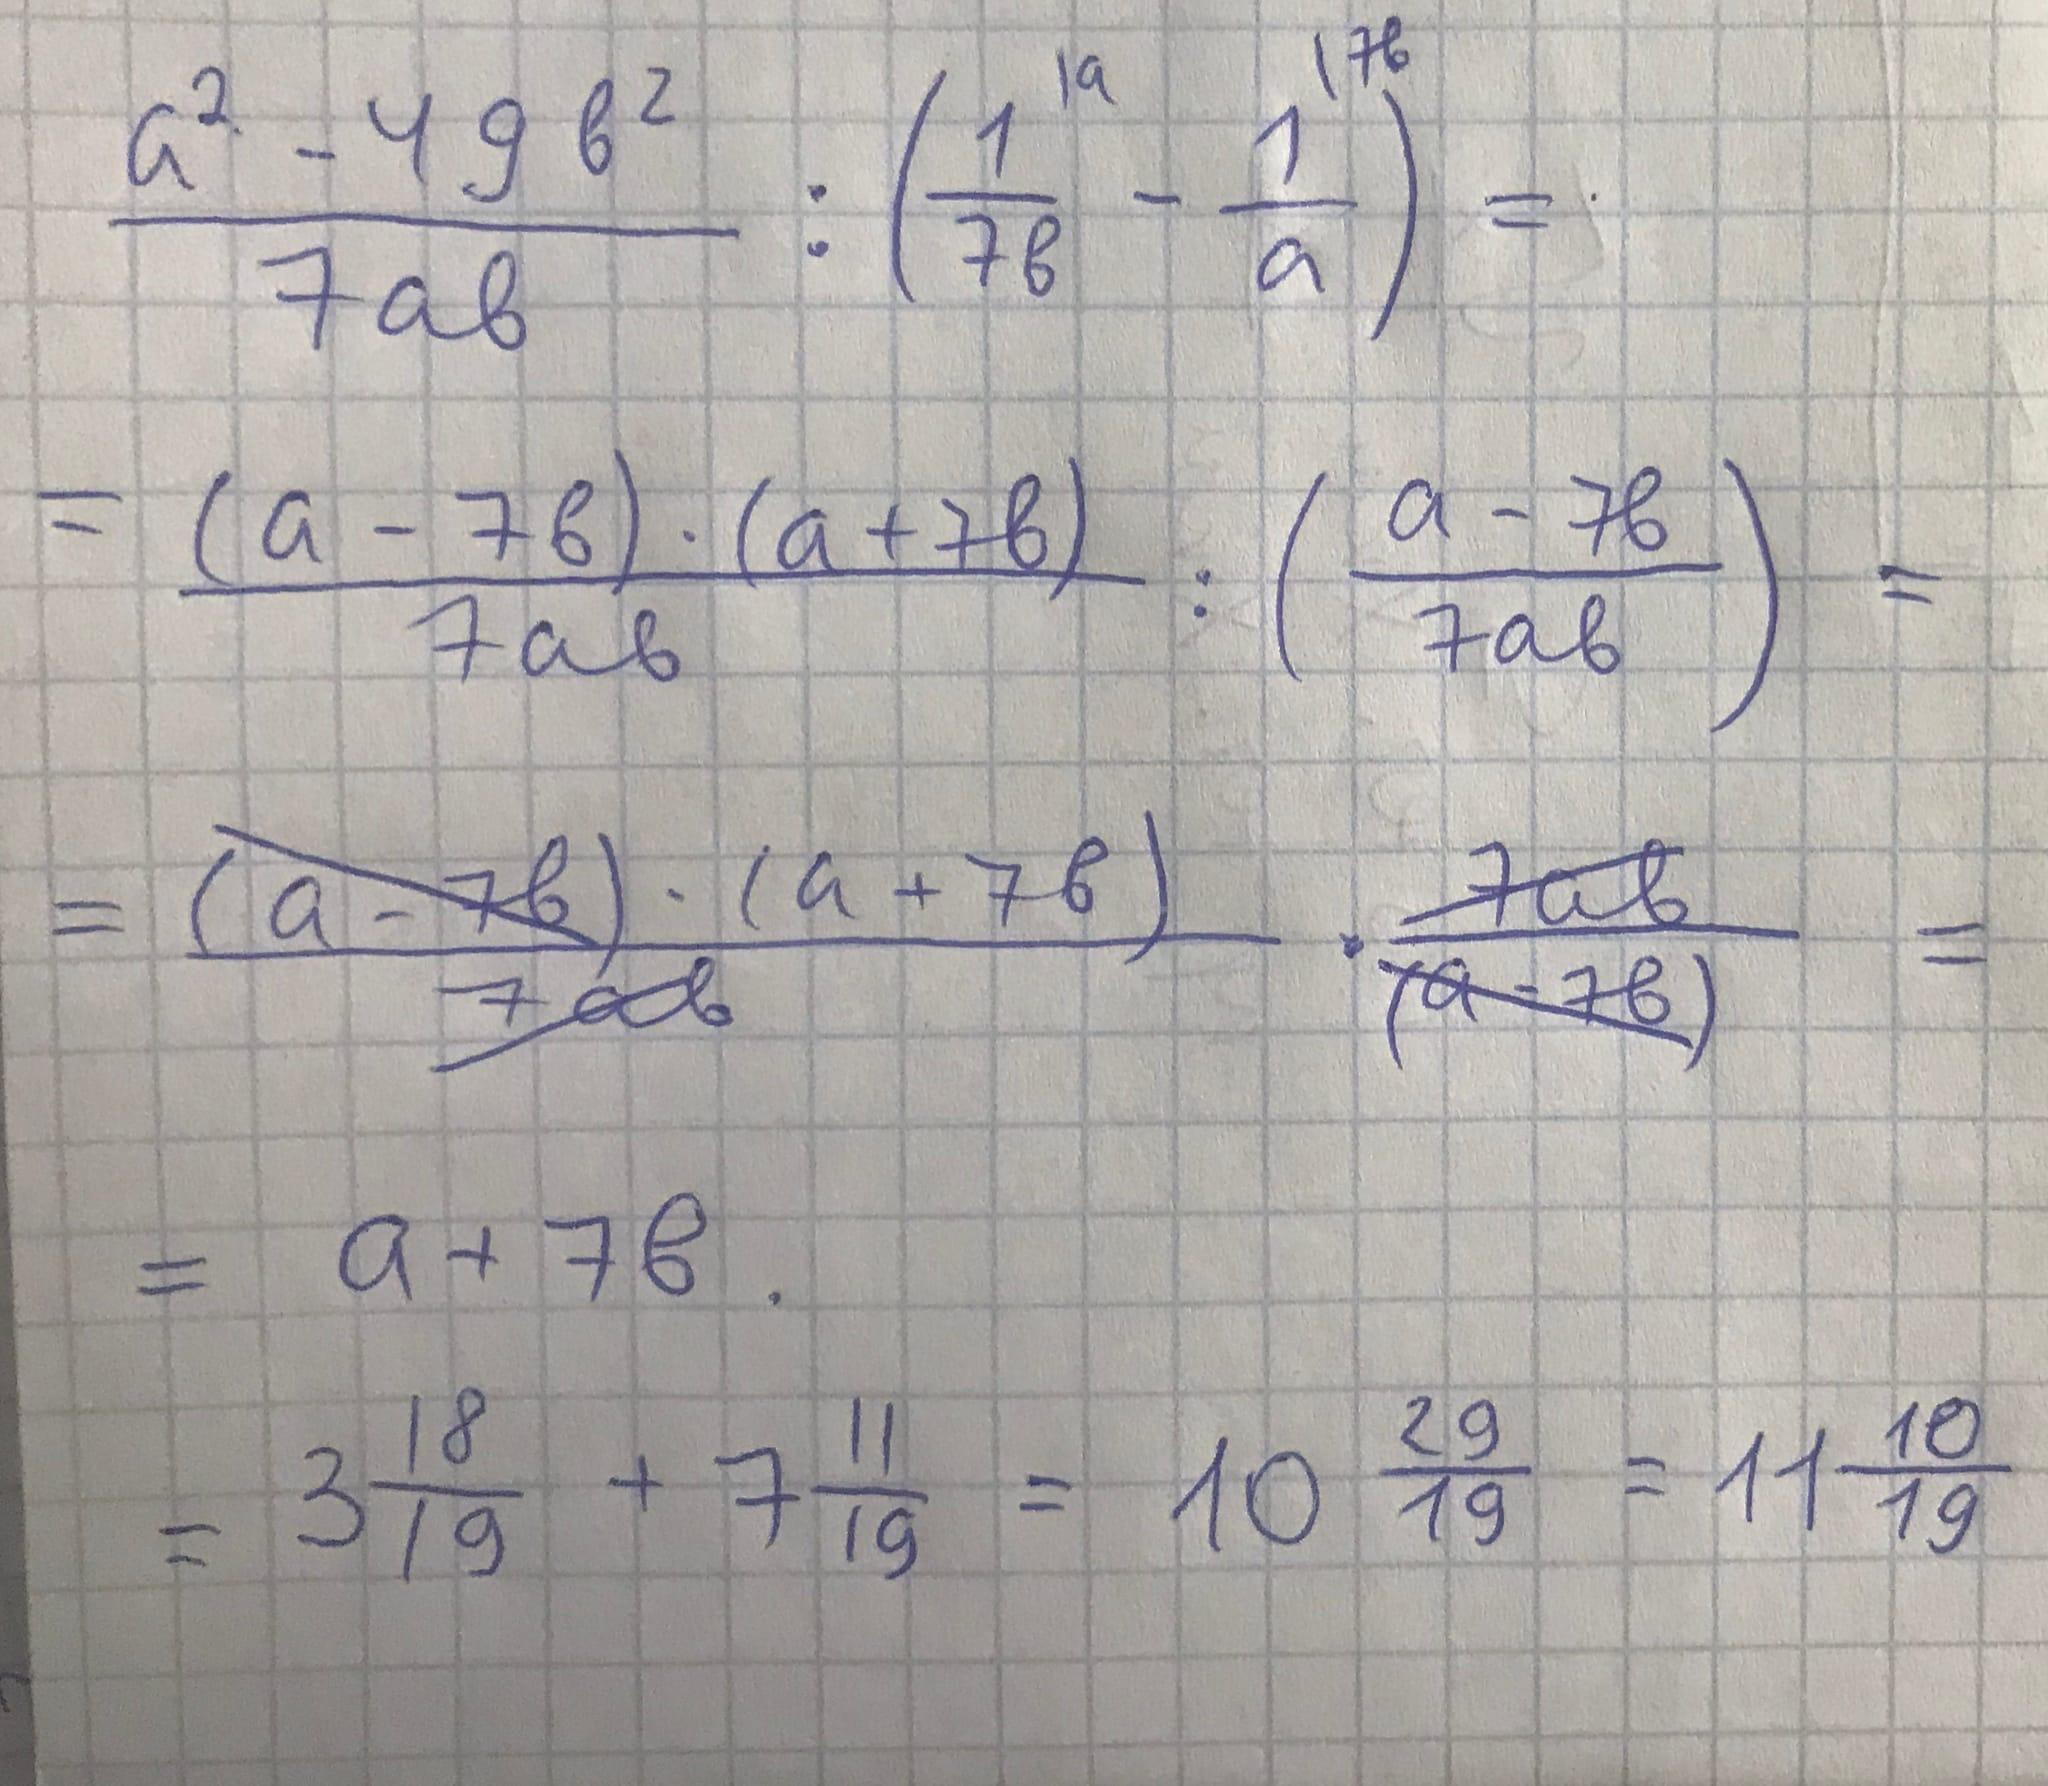 (a² - 49b²)/(7ab) : (1/(7b) |a - 1/a |7b) =
= ((a - 7b) · (a + 7b))/(7ab) : ((a - 7b)/(7ab)) =
= ((a - 7b) · (a + 7b))/(7ab) · (7ab)/((a - 7b)) =
= a + 7b.
= 3 18/19 + 7 11/19 = 10 29/19 = 11 10/19